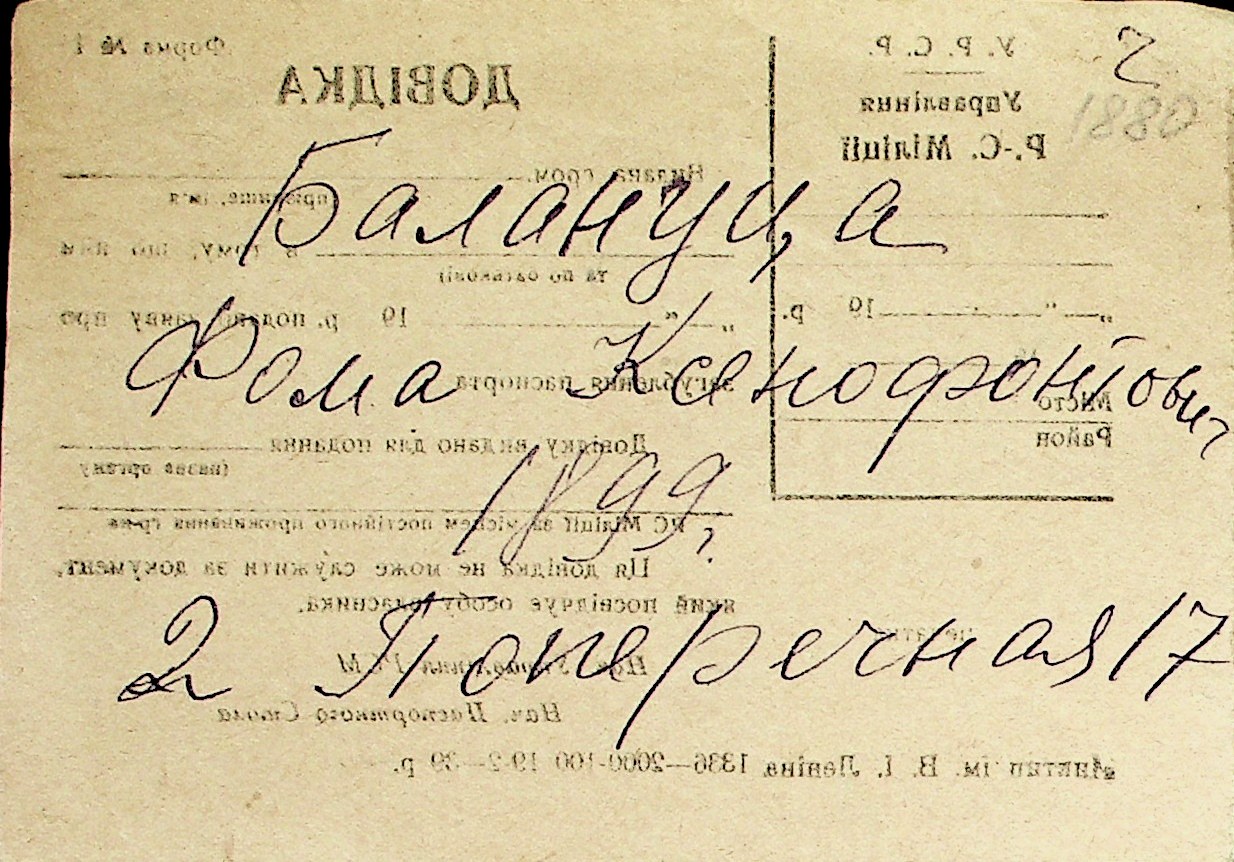 2
1880
Балануца
Фома Ксенофонтович
1899 г.
2 Поперечная 17
Форма № 1
ДОВІДКА
Видана гром.
(прізвище, ім'я
в тому, що ним
та по батькові)
„ “ 19 р. подано заяву про
загублення паспорта
Довідку видано для подання
(назва органу
РС Міліції за місцем постійного проживання гр-на
Ця довідка не може служити за документ,
який посвідчує особу власника.
Нач. Управління РСМ
Нач. Паспортного Стола
У. Р. С. Р.
Управління
Р.-С. Міліції
„ “ 19 р.
Місто
Район
ім. В. І. Леніна 1336—2000-100 19-2—39 р.